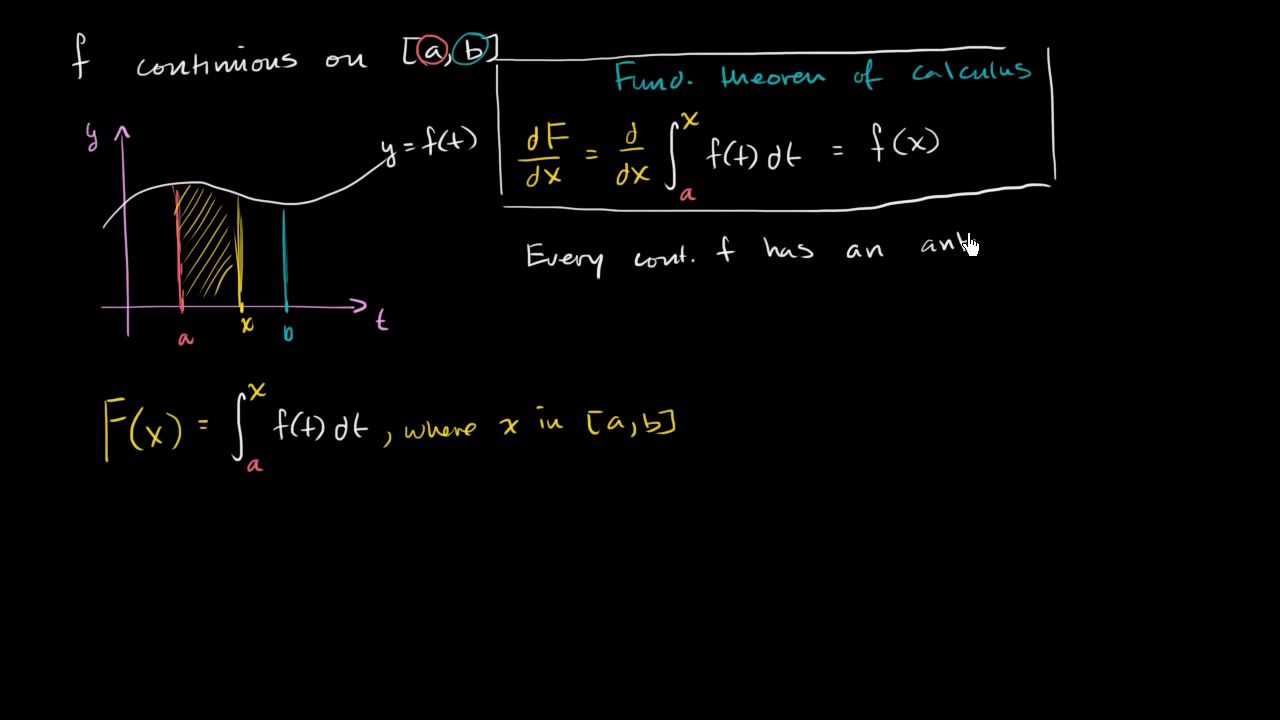 f continuous on [a, b]
Fund. theorem of calculus
dF/dx = d/dx ∫_a^x f(t) dt = f(x)
Every cont. f has an anti
y
y = f(t)
t
a x b
F(x) = ∫_a^x f(t) dt, where x in [a,b]